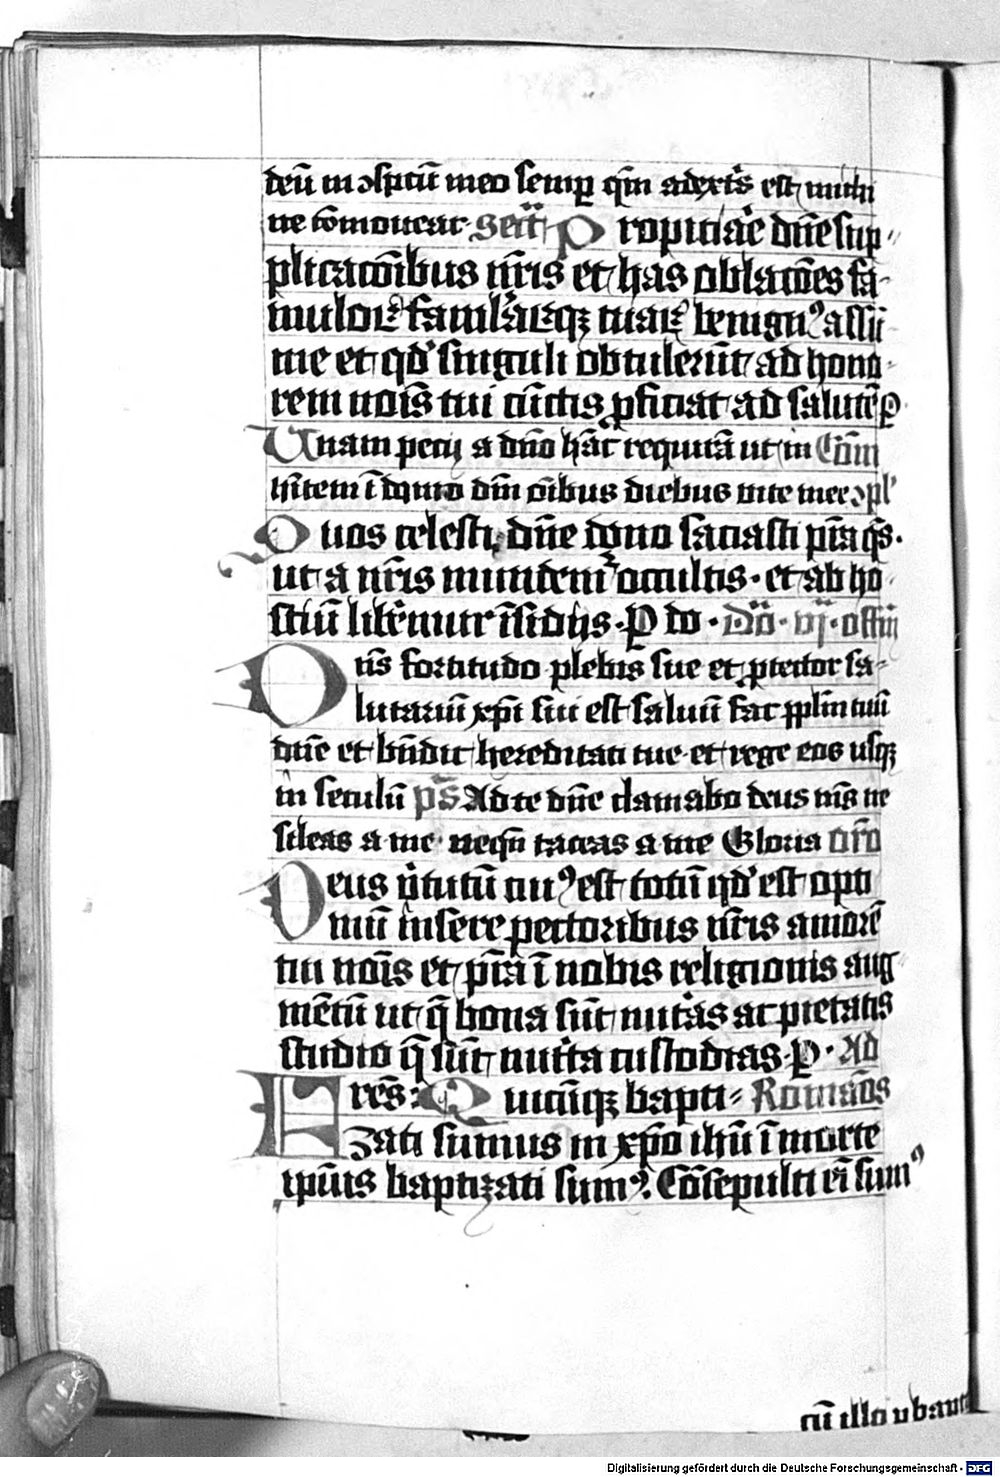 deū in ↄspctū meo semꝑ qm̄ adextˢ est michi
ne ꝯmouear Sect̄ Propiciaˢe dn̄e sup
plicacōibus nr̄is et has oblacōes fa
mulorꝝ famˡarꝝqꝫ tuarꝝ benignꝰ assū
me et qd' singuli obtulerūt ad hono
rem noīs tui cūctis ꝓficiat ad salutē ꝑ
Unam pecij a dn̄o hāc requirā ut in Cōm
hītem ī domo dn̄i oībus diebus vite mee ↄpl'
Quos celesti dn̄e dono saciasti pr̄a qˢ.
ut a nr̄is mundemꝰ occultis. et ab ho
stiū liberemur īsidijs. P do. Dō. vj. offiij
Dn̄s fortitudo plebis sue et ꝓtector sa
lutariū xp̄i sui est saluū fac pplm̄ tuū
dn̄e et bn̄dic hereditati tue et rege eos usqꝫ
in seculū pˢ Ad te dn̄e clamabo deus mˢ ne
sileas a me neqn̄ taceas a me Gloria Or̄o
Deus v̇tutū cuiꝰ est totū qd' est opti
mū insere pectoribus nr̄is amorē
tui noīs et pr̄a ī nobis religionis aug
mētū ut q̄ bona sūt nutˢas ac pietatis
studio q̄ sūt nutⁱta custodias. P. Ad
Fres: Quicūqꝫ bapti Romāos
zati sumus in xp̄o ihū ī morte
ip̄ius baptizati sumꝰ. Cōsepulti eī sumꝰ
cū illo